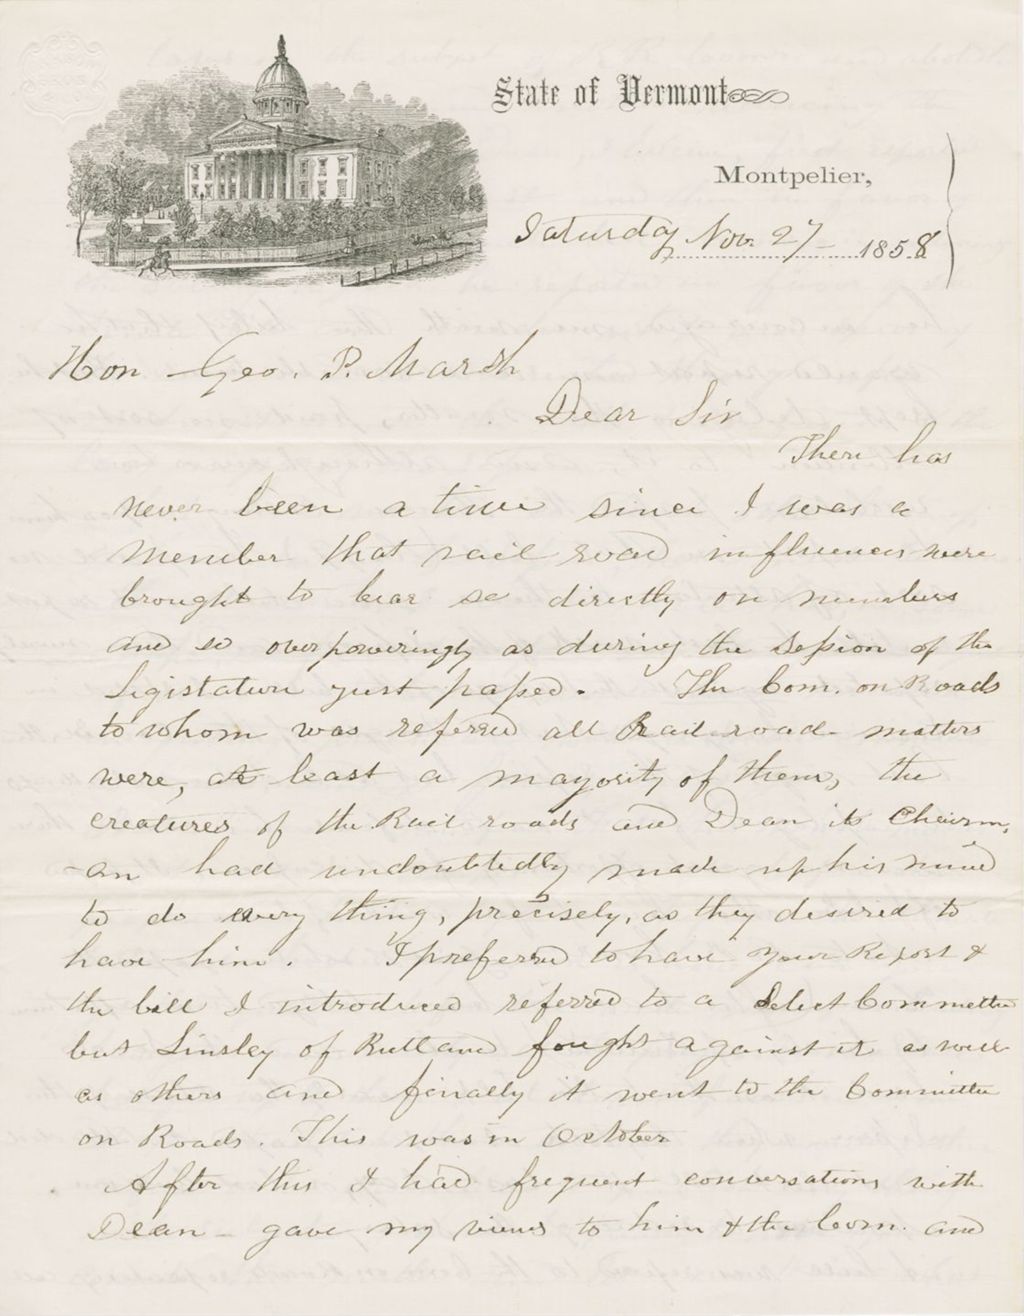 State of Vermont
Montpelier,
Saturday Nov. 27 - 1858
Hon Geo. P. Marsh
Dear Sir
There has
never been a time since I was a
member that rail road influences were
brought to bear so directly on members
and so overpoweringly as during the session of the
Legislature just passed. The Com. on Roads
to whom was referred all Rail road matters
were, at least a majority of them, the
creatures of the Rail roads and Dean its Chairm,
-an had undoubtedly made up his mind
to do every thing, precisely, as they desired to
have him. I preferred to have your Report &
the bill I introduced referred to a Select Committee
but Linsley of Rutland fought against it as well
as others and finally it went to the Committee
on Roads. This was in October
After this I had frequent conversations with
Dean - gave my views to him & the Com. and